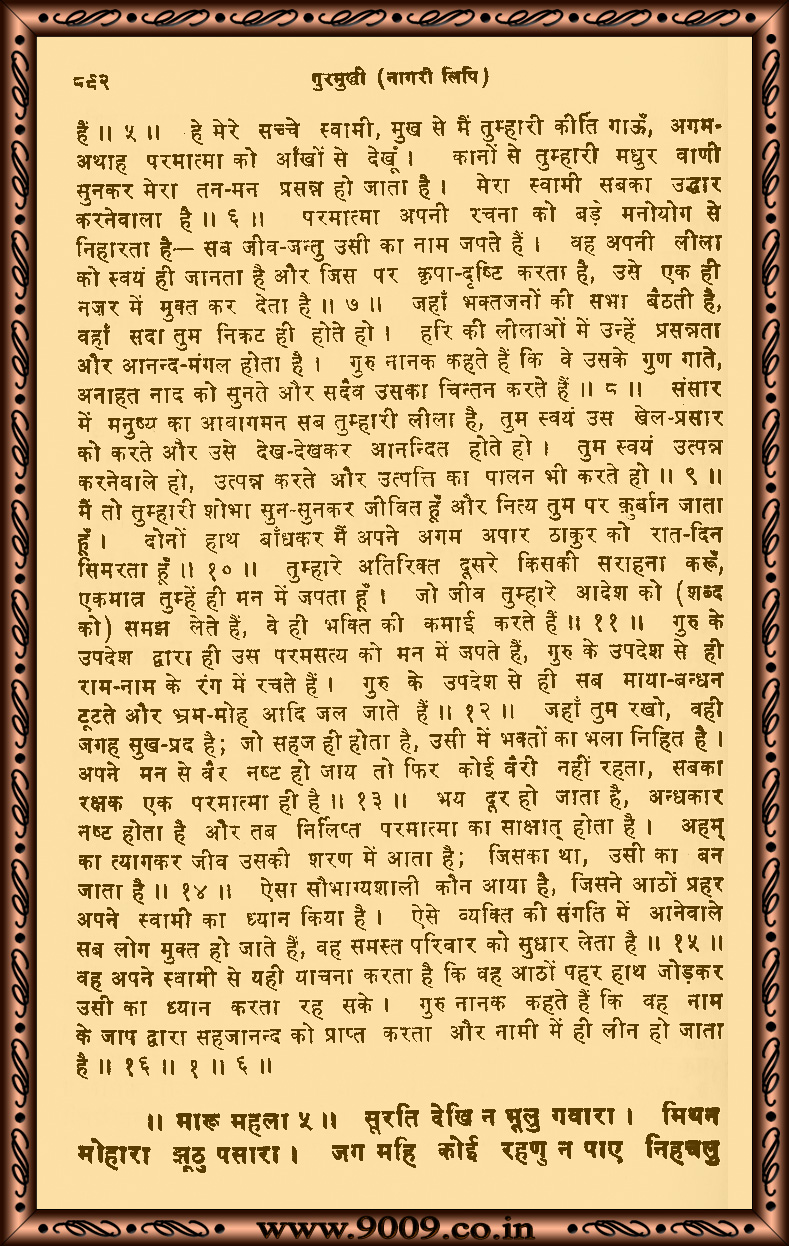 ८९२
गुरमुखी (नागरी लिपि)
हैं ॥ ५ ॥ हे मेरे सच्चे स्वामी, मुख से मैं तुम्हारी कीर्ति गाऊँ, अगम-
अथाह परमात्मा को आँखों से देखूं । कानों से तुम्हारी मधुर वाणी
सुनकर मेरा तन-मन प्रसन्न हो जाता है । मेरा स्वामी सबका उद्धार
करनेवाला है ॥ ६ ॥ परमात्मा अपनी रचना को बड़े मनोयोग से
निहारता है— सब जीव-जन्तु उसी का नाम जपते हैं । वह अपनी लीला
को स्वयं ही जानता है और जिस पर कृपा-दृष्टि करता है, उसे एक ही
नज़र में मुक्त कर देता है ॥ ७ ॥ जहाँ भक्तजनों की सभा बैठती है,
वहाँ सदा तुम निकट ही होते हो । हरि की लीलाओं में उन्हें प्रसन्नता
और आनन्द-मंगल होता है । गुरु नानक कहते हैं कि वे उसके गुण गाते,
अनाहत नाद को सुनते और सदैव उसका चिन्तन करते हैं ॥ ८ ॥ संसार
में मनुष्य का आवागमन सब तुम्हारी लीला है, तुम स्वयं उस खेल-प्रसार
को करते और उसे देख-देखकर आनन्दित होते हो । तुम स्वयं उत्पन्न
करनेवाले हो, उत्पन्न करते और उत्पत्ति का पालन भी करते हो ॥ ९ ॥
मैं तो तुम्हारी शोभा सुन-सुनकर जीवित हूँ और नित्य तुम पर क़ुर्बान जाता
हूँ । दोनों हाथ बाँधकर मैं अपने अगम अपार ठाकुर को रात-दिन
सिमरता हूँ ॥ १० ॥ तुम्हारे अतिरिक्त दूसरे किसकी सराहना करूँ,
एकमात्र तुम्हें ही मन में जपता हूँ । जो जीव तुम्हारे आदेश को (शब्द
को) समझ लेते हैं, वे ही भक्ति की कमाई करते हैं ॥ ११ ॥ गुरु के
उपदेश द्वारा ही उस परमसत्य को मन में जपते हैं, गुरु के उपदेश से ही
राम-नाम के रंग में रचते हैं । गुरु के उपदेश से ही सब माया-बन्धन
टूटते और भ्रम-मोह आदि जल जाते हैं ॥ १२ ॥ जहाँ तुम रखो, वही
जगह सुख-प्रद है; जो सहज ही होता है, उसी में भक्तों का भला निहित है ।
अपने मन से वैर नष्ट हो जाय तो फिर कोई वैरी नहीं रहता, सबका
रक्षक एक परमात्मा ही है ॥ १३ ॥ भय दूर हो जाता है, अन्धकार
नष्ट होता है और तब निर्लिप्त परमात्मा का साक्षात् होता है । अहम्
का त्यागकर जीव उसकी शरण में आता है; जिसका था, उसी का बन
जाता है ॥ १४ ॥ ऐसा सौभाग्यशाली कौन आया है, जिसने आठों प्रहर
अपने स्वामी का ध्यान किया है । ऐसे व्यक्ति की संगति में आनेवाले
सब लोग मुक्त हो जाते हैं, वह समस्त परिवार को सुधार लेता है ॥ १५ ॥
वह अपने स्वामी से यही याचना करता है कि वह आठों पहर हाथ जोड़कर
उसी का ध्यान करता रह सके । गुरु नानक कहते हैं कि वह नाम
के जाप द्वारा सहजानन्द को प्राप्त करता और नामी में ही लीन हो जाता
है ॥ १६ ॥ १ ॥ ६ ॥
॥ मारू महला ५ ॥ सूरति देखि न भूलु गवारा । मिथन
मोहारा झूठु पसारा । जग महि कोई रहणु न पाए निहचलु
www.9009.co.in